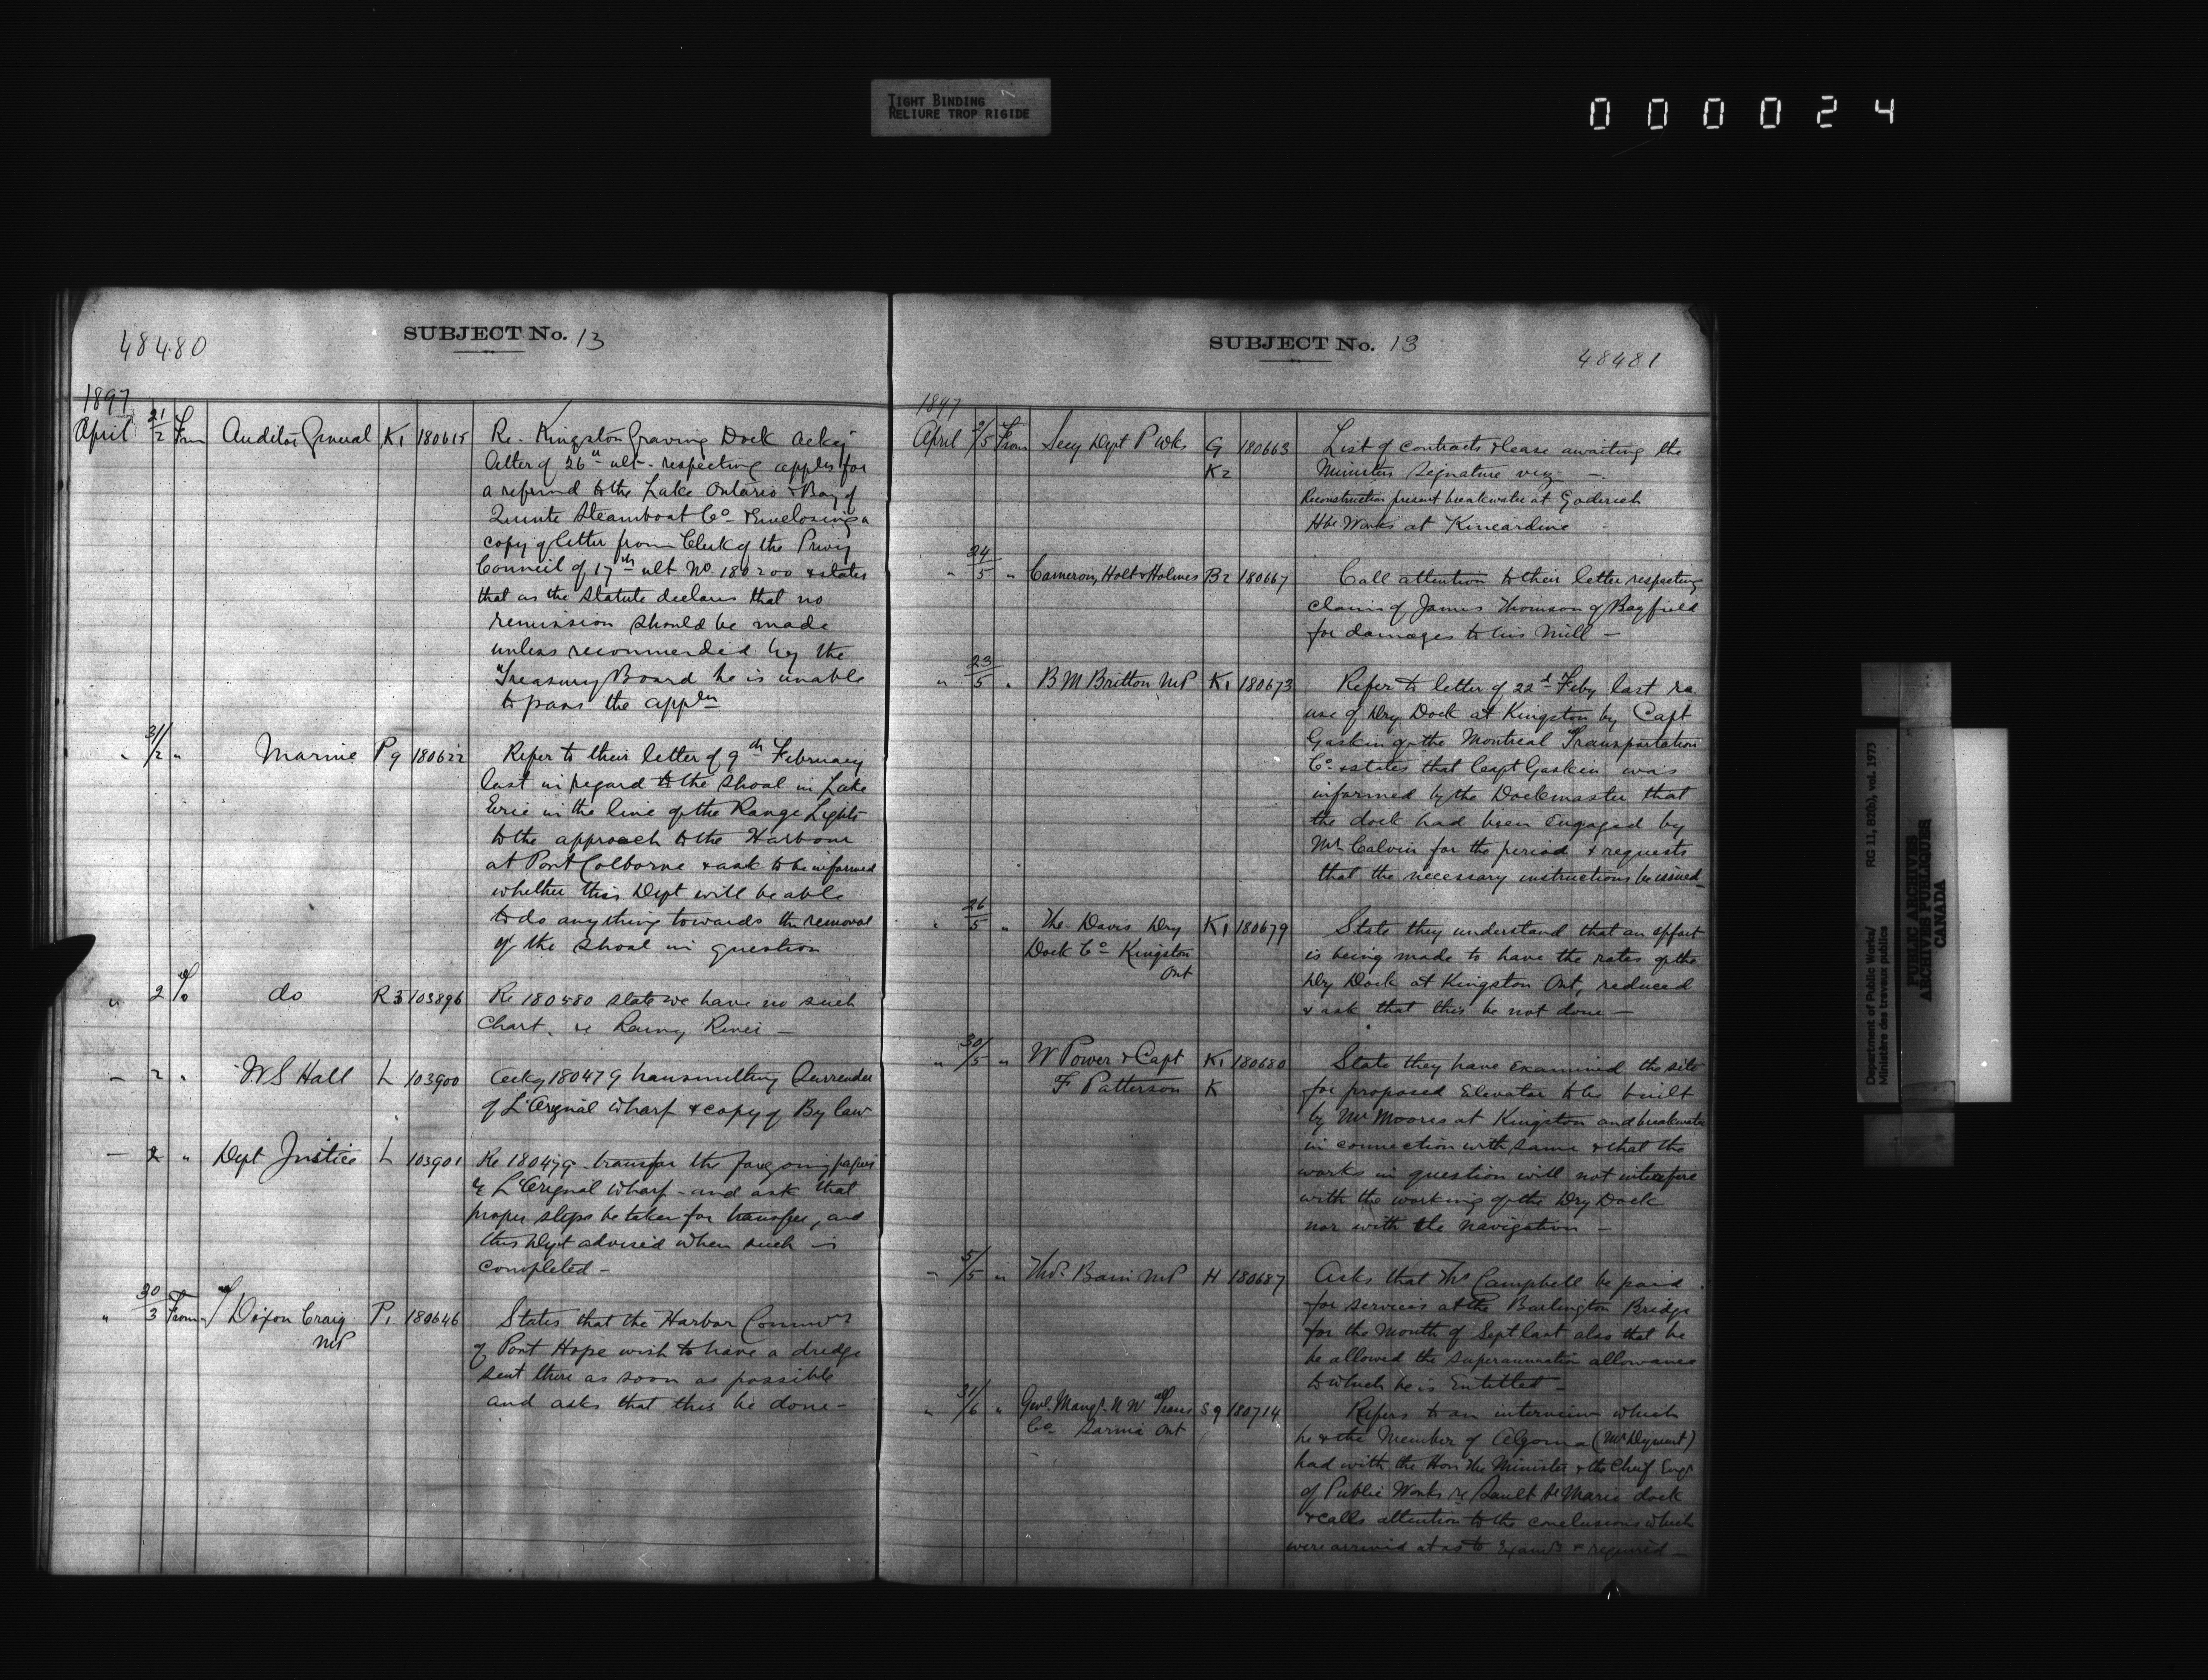 TIGHT BINDING
RELIURE TROP RIGIDE
000024
48480
SUBJECT No. 13
1897
April 31/2 From Auditor General K1 180615 Re. Kingston Graving Dock ackg
letter of 26th ult. respecting appln for
a refund to the Lake Ontario & Bay of
Quinte Steamboat Co & Enclosing a
copy of letter from Clerk of the Privy
Council of 17th ult No. 180200 & states
that as the Statute declares that no
remission should be made
unless recommended by the
Treasury Board he is unable
to pass the appln
" 31/2 " Marine P9 180622 Refer to their letter of 9th February
last in regard to the shoal in Lake
Erie in the line of the Range Lights
to the approach to the Harbour
at Port Colborne & ask to be informed
whether this Dept will be able
to do anything towards the removal
of the shoal in question
" 2 To do R3 103896 Re 180580 state we have no such
Chart. re Rainy River —
— 2 " W S Hall L 103900 Ackg 180479 transmitting Surrender
of L'Orignal Wharf & copy of By law
— 2 " Dept Justice L 103901 Re 180479 transfer the foregoing papers
re L'Orignal Wharf - and ask that
proper steps be taken for transfer, and
this Dept advised when such is
completed -
" 30/3 From Dixon Craig P1 180646 States that the Harbor Commrs
MP
of Port Hope wish to have a dredge
sent there as soon as possible
and asks that this be done -
SUBJECT No. 13
48481
1897
April /5 From Secy Dept P Wks G 180663 List of contracts & lease awaiting the
K2 Ministers Signature viz —
Reconstruction present breakwater at Goderich
Hbr Works at Kincardine -
" 24/5 " Cameron, Holt & Holmes B2 180667 Call attention to their letter respecting
claim of James Thomson of Bayfield
for damages to his Mill —
" 23/5 " B M Britton MP K1 180673 Refer to letter of 22d Feby last re
use of Dry Dock at Kingston by Capt
Gaskin of the Montreal Transportation
Co & states that Capt Gaskin was
informed by the Dockmaster that
the dock had been Engaged by
Mr Calvin for the period & requests
that the necessary instructions be issued
" 26/5 " The Davis Dry K1 180679 State they understand that an effort
Dock Co Kingston is being made to have the rates of the
Ont Dry Dock at Kingston Ont, reduced
& ask that this be not done —
" 30/5 " W Power & Capt K1 180680 State they have Examined the site
F Patterson K for proposed Elevator to be built
by Mr Moores at Kingston and breakwater
in connection with same & that the
works in question will not interfere
with the working of the Dry Dock
nor with the navigation —
" 5/5 " Thos. Bain MP H 180687 Asks that Thos Campbell be paid
for services at the Burlington Bridge
for the Month of Sept last also that he
be allowed the superannuation allowance
to which he is Entitled -
" 31/6 " Genl. Mangr. N W Trans S9 180714 Refers to an interview which
Co Sarnia Ont he & the Member of Algoma (Mr Dyment)
had with the Hon the Minister & the Chief Engr
of Public Works re Sault Ste Marie dock
& calls attention to the conclusions which
were arrived at as to & required —
Department of Public Works/ RG 11, B2(b), vol. 1973
Ministère des travaux publics
PUBLIC ARCHIVES
ARCHIVES PUBLIQUES
CANADA